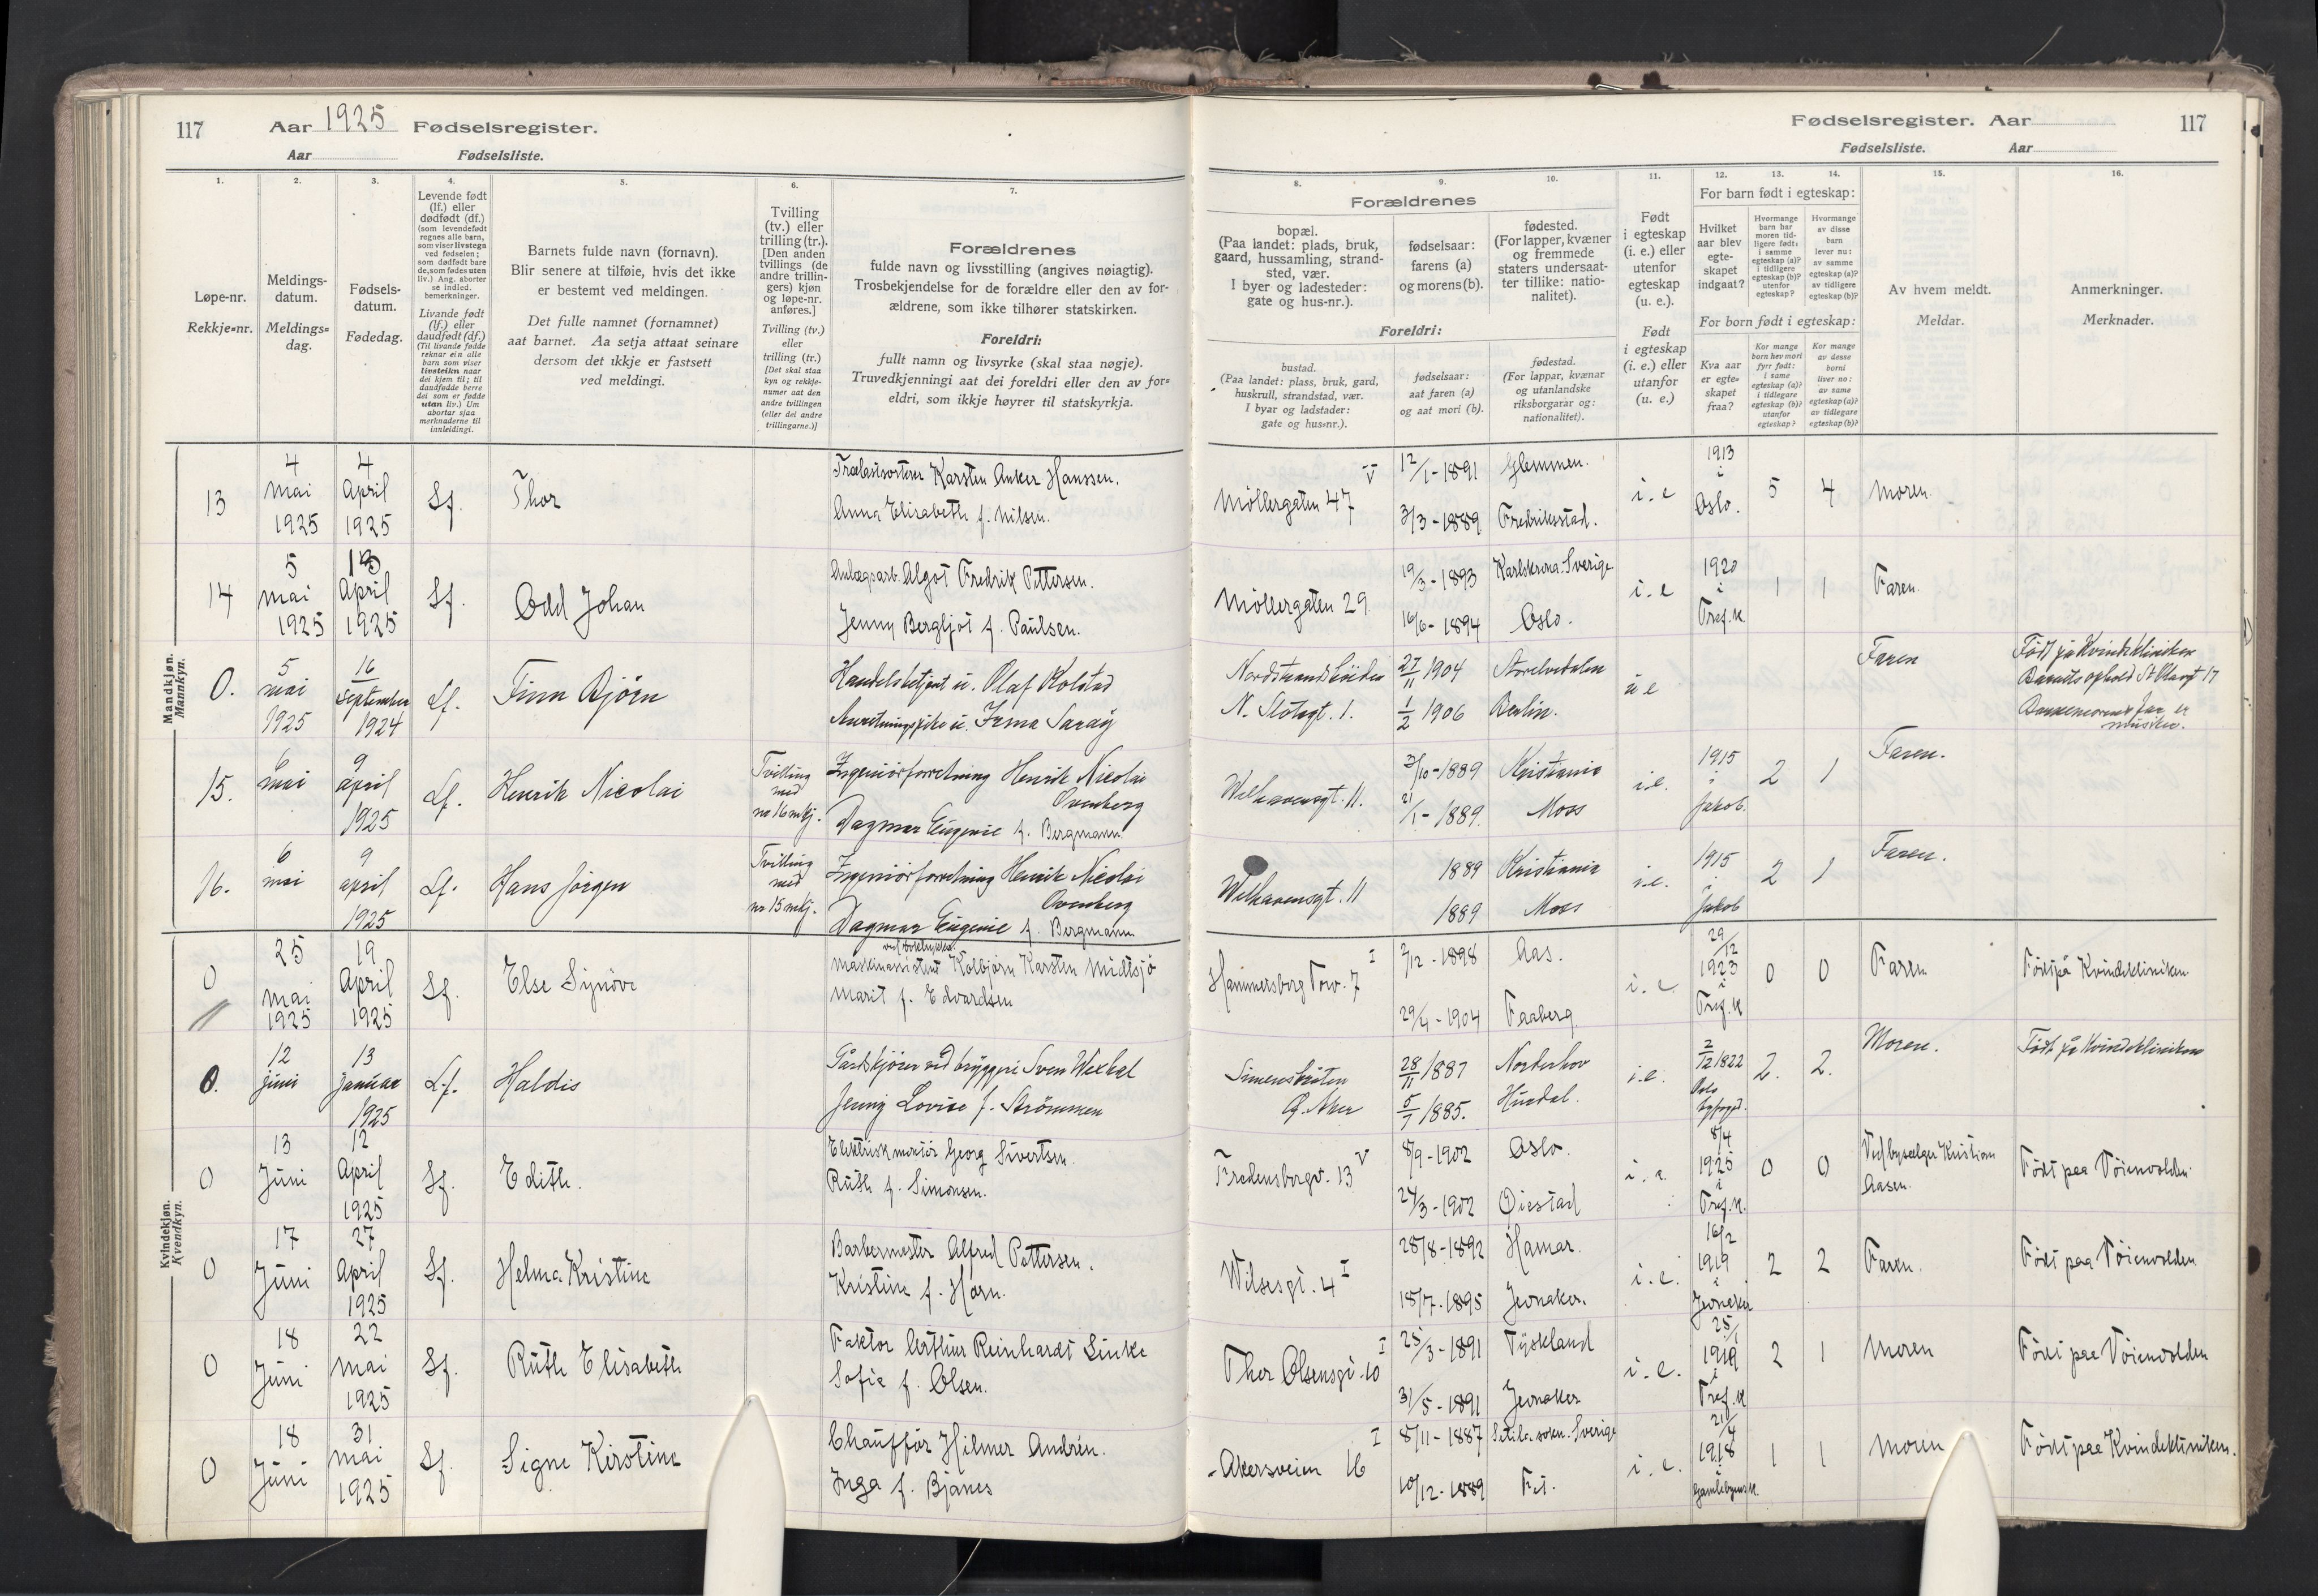 117 Aar 1925 Fødselsregister.
Aar Fødselsliste.
1. 2. 3. 4. 5. 6. 7.
Løpe-nr.
Rekkje=nr.
Meldings-
datum.
Meldings=
dag.
Fødsels-
datum.
Fødedag.
Levende født
(lf.) eller
dødfødt (df.)
(som levendefødt
regnes alle barn,
som viser livstegn
ved fødselen;
som dødfødt bare
de, som fødes uten
liv.) Ang. aborter
se indled.
bemerkninger.
Livande født
(lf.) eller
daudfødt (df.)
(Til livande fødde
reknar ein alle
born som viser
livsteikn naar
dei kjem til; til
daudfødde berre
dei som er fødde
utan liv.) Um
abortar sjaa
merknaderne til
innleidingi.
Barnets fulde navn (fornavn).
Blir senere at tilføie, hvis det ikke
er bestemt ved meldingen.
Det fulle namnet (fornamnet)
aat barnet. Aa setja attaat seinare
dersom det ikkje er fastsett
ved meldingi.
Tvilling
(tv.) eller
trilling (tr.).
[Den anden
tvillings (de
andre trillin-
gers) kjøn
og løpe-nr.
anføres.]
Tvilling (tv.)
eller
trilling (tr.)
[Det skal staa
kyn og rekkje-
numer aat den
andre tvillingen
(eller dei andre
trillingarne.)]
Forældrenes
fulde navn og livsstilling (angives nøiagtig).
Trosbekjendelse for de forældre eller den av for-
ældrene, som ikke tilhører statskirken.
Foreldri:
fullt namn og livsyrke (skal staa nøgje).
Truvedkjenningi aat dei foreldri eller den av for=
eldri, som ikkje høyrer til statskyrkja.
Fødselsregister. Aar 117
Fødselsliste. Aar
8. 9. 10. 11. 12. 13. 14. 15. 16.
Forældrenes
bopæl.
(Paa landet: plads, bruk,
gaard, hussamling, strand-
sted, vær.
I byer og ladesteder:
gate og hus-nr.).
fødselsaar:
farens (a)
og morens (b).
fødested.
(For lapper, kvæner
og fremmede
staters undersaat-
ter tillike: natio-
nalitet).
Foreldri:
bustad.
(Paa landet: plass, bruk, gard,
huskrull, strandstad, vær.
I byar og ladstader:
gate og hus=nr.).
fødselsaar:
aat faren (a)
og aat mori (b).
fødestad.
(For lappar, kvænar
og utanlandske
riksborgarar og:
nationalitet).
Født
i egteskap
(i. e.) eller
utenfor
egteskap
(u. e.).
Født
i egteskap
(i. e.) eller
utanfor
egteskap
(u. e.)
For barn født i egteskap:
Hvilket
aar blev
egte-
skapet
indgaat?
Hvormange
barn har
moren tid-
ligere født:
i samme
egteskap (a)?
i tidligere
egteskap (b)?
utenfor
egteskap?
Hvormange
av disse
barn
lever nu:
av samme
egteskap (a)?
av tidligere
egteskap (b)?
For born født i egteskap:
Kva aar
er egte=
skapet
fraa?
Kor mange
born hev mori
fyrr født:
i same
egteskap (a)?
i tidlegare
egteskap (b)?
utanfor
egteskap?
Kor mange
av desse
borni
liver no:
av same
egteskap (a)?
av tidlegare
egteskap (b)?
Av hvem meldt.
Meldar.
Anmerkninger.
Merknader.
Mandkjøn.
Mannkyn.
13 4 mai 1925 4 April 1925 Lf. Thor
Trælastsorterer Karsten Anker Hanssen.
Anna Elisabeth f. Nilsen.
Møllergaten 47 V 12/1-1891 Glemmen. 3/3-1889 Fredriksstad. i. e 1913 i Oslo. 5 4 Moren.
14 5 mai 1925 13 April 1925 Lf. Odd Johan
Anlægsarb. Algot Fredrik Pettersen.
Jenny Bergljot f. Paulsen.
Møllergaten 29 19/3-1893 Karlskrona. Sverige 16/6-1894 Oslo. i. e 1920 i Tref. K. 1 1 Faren.
0. 5 mai 1925 16 September 1924 Lf. Finn Bjørn
Handelsbetjent u. Olaf Kolstad
Irma
Nordstrandshøiden 27/11 1904 Storelvdalen
N. Slotsgt. 1. 1/2 1906 Berlin. u e Faren
Født på Kvindeklinikken
Barnets ophold St Olavsgt 17
musiker.
15. 6 mai 9 april 1925 Lf. Henrik Nicolai Tvilling med nr 16 mkj.
Ingeniørforretning Henrik Nicolai
Ovenberg
Dagmar Eugenie f. Bergmann.
Welhavensgt. 11. 1889 Kristiania 21/1-1889. Moss i.e. 1915 i Jakob. 2 1 Faren.
16. 6 mai 9 april 1925 Lf. Hans Jørgen Tvilling med nr 15 mkj.
Ingeniørforretning Henrik Nicolai
Ovenberg
Dagmar Eugenie f. Bergmann
Welhavensgt. 11 1889 Kristiania 1889 Moss i.e. 1915 i Jakob 2 1 Faren.
Kvindekjøn.
Kvendkyn.
0 25 mai 1925 19 April 1925 Lf. Else Synøve
Maskinassistent Kolbjørn Karsten Midtsjø
Marit f. Edvardsen
Hammersborg Torv. 7 I 2/12-1898 Aas. 29/4-1904 Faaberg. i. e. 29/12 1923 i Tref. K 0 0 Faren Født på Kvindeklinikken
0. 12 juni 13 januar 1925 L.f. Haldis
Gårdskjører ved bryggeri Sven
Jenny Lovise f. Strömmen
Ø. Aker 28/11 1887 Norderhov 5/7 1885. Hurdal. i.e. 2/12 1822 Oslo byfogd. 2. 2. Moren. Født på Kvindeklinikken
0 13 Juni 12 April 1925 Lf. Edith.
Elektriskmontør Georg Sivertsen.
Ruth f. Simonsen.
Fredensborgv. 13 V 8/9-1902 Oslo. 24/3-1902 Øiestad i. e. 8/4 1925 i Tref. K. 0 0 Vedbysælger Kristian Aasen. Født paa Tøienvolden.
0 17 Juni 27 April 1925 Lf. Helma Kristine
Barbermester Alfred Pettersen.
Kristine f. Horn.
Wilsesgt. 4 I 28/8-1892 Hamar. 18/7-1895 Jevnaker. i. e. 16/2 1919 i Jevnaker 2 2 Faren. Født paa Tøienvolden
0 18 Juni 22 mai 1925 Lf. Ruth Elisabeth
Faktor Arthur Reinhardt Linke
Sofie f. Olsen.
Thor Olsensgt. 10 I 25/3-1891 Tyskland 31/5-1891 Jevnaker i. e. 25/1 1919 i Tref. K 2 1 Moren Født paa Tøienvolden
0 18 Juni 31 mai 1925 Lf. Signe Kirstine
Chauffør Hilmer Andrén.
Inga f. Bjånes
Akersveien 16 I 8/11-1887 Sverige 10/12-1889 Fet. i. e. 21/4 1918 i Gamlebyensk. 1 1 Moren Født paa Kvindekliniken.